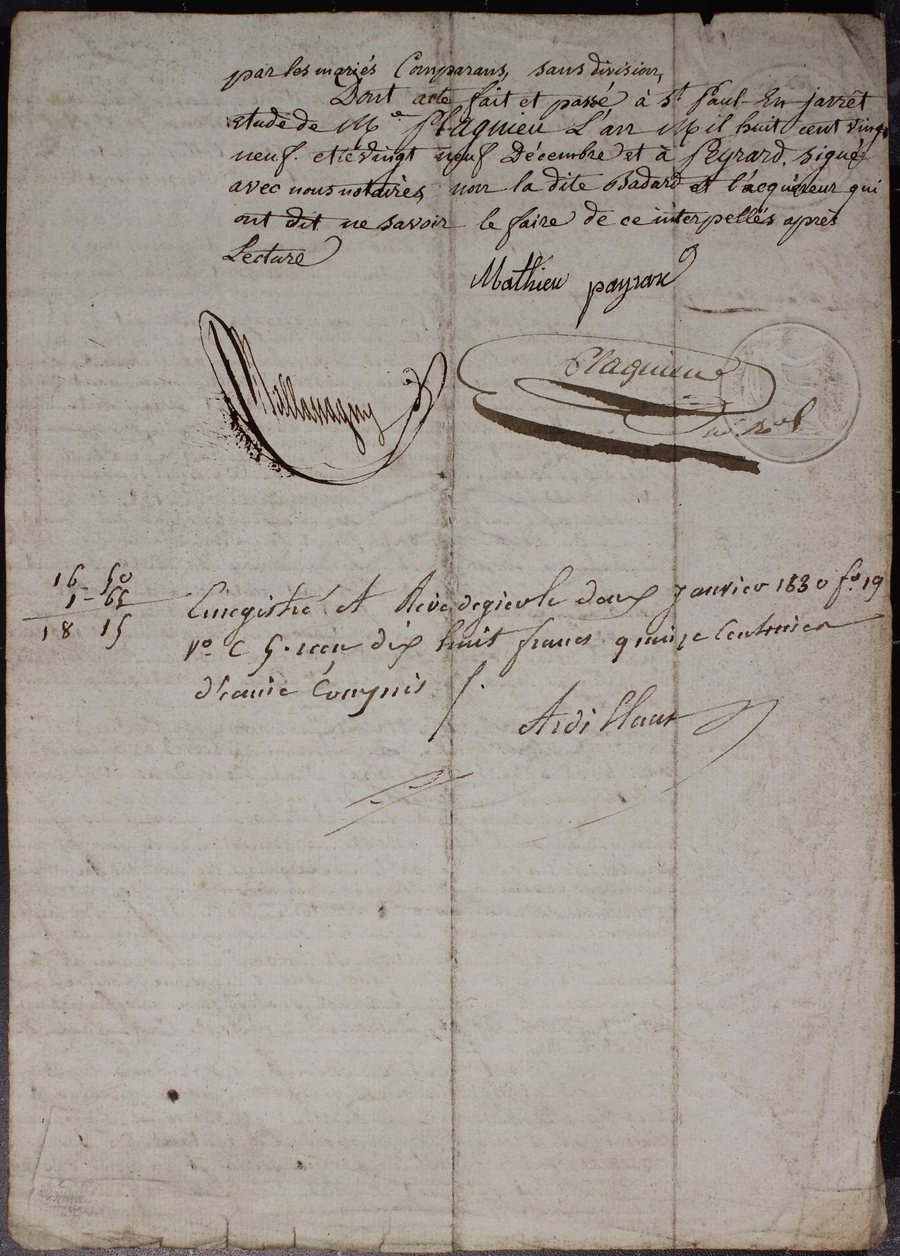 par les mariés Comparans, sans division,
Dont acte fait et passé à St Paul-En jarrêt
etude de Me Plagnieu L'an Mil huit cent vingt
neuf. et le vingt neuf Décembre et à Peyrard signé
avec nous notaires, non la dite Badard et l'acquéreur qui
ont dit ne savoir le faire de ce interpellés après
Lecture
Mathieu payrard
Plagnieu
Mallassagny
nre Ral
16 50
1 - 65
18 15
Enregistré à Rive de gier le deux Janvier 1830 fo 19
vo C 5. reçu dix huit francs quinze Centimes
dixme Compris
Ardillon